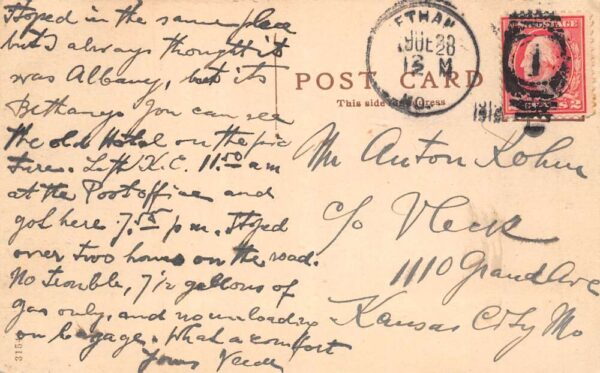 Stoped in the same place
but I always thought it
was Albany, but its
Bethany. You can see
the old Hotel on the pic
ture. Left K.C. 11.50 am
at the Postoffice and
got here 7.55 p m. Stoped
over two hours on the road.
No trouble, 7 1/2 gallons of
gas only, and no unloading
on bagage. What a comfort
Yours Veeck
3154
POST CARD
This side for address
ETHAN
28
12 M
MO.
1
2
Mr Anton Kohn
c/o Veeck
1110 Grand Ave
Kansas City Mo